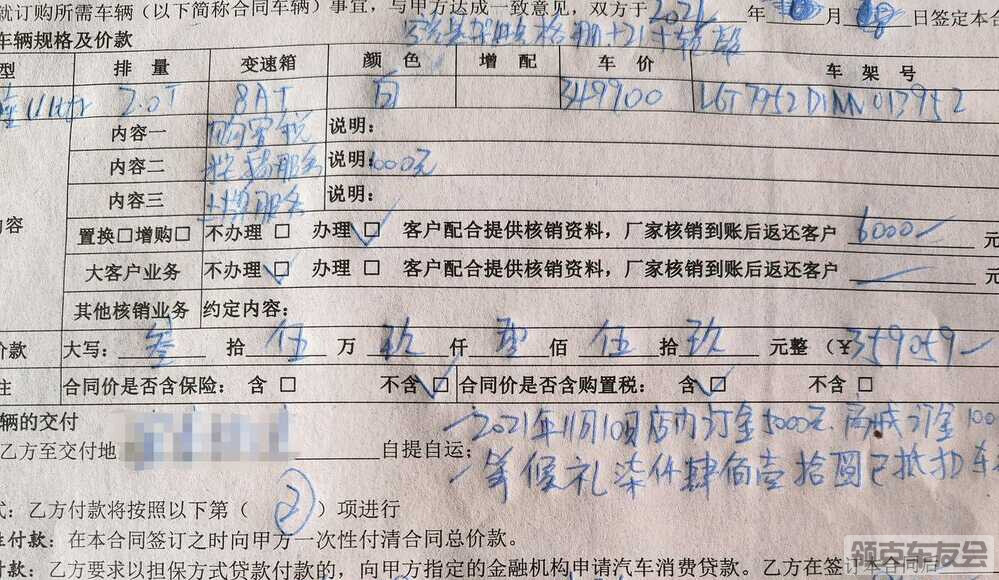 就订购所需车辆（以下简称合同车辆）事宜，与甲方达成一致意见，双方于2021年 月 日签定本合
车辆规格及价款
型 排量 变速箱 颜色 增配 车价 车架号
2.0T 8AT 白 349900
内容一 购置税 说明：
内容二 服务 说明：1000元
内容三 上牌服务 说明：
置换□增购□ 不办理□ 办理□ 客户配合提供核销资料，厂家核销到账后返还客户 6000 元
大客户业务 不办理□ 办理□ 客户配合提供核销资料，厂家核销到账后返还客户
其他核销业务 约定内容：
价款 大写：叁 拾 伍 万 玖 仟 零 佰 伍 拾 玖 元整（¥359059
注 合同价是否含保险：含□ 不含□ 合同价是否含购置税：含□ 不含□
辆的交付
2021年11月10日店内订金5000元 商城订金100
乙方至交付地 自提自运；
等候礼柒仟肆佰壹拾圆已抵扣车
式：乙方付款将按照以下第（ 2 ）项进行
性付款：在本合同签订之时向甲方一次性付清合同总价款。
付款：乙方要求以担保方式贷款付款的，向甲方指定的金融机构申请汽车消费贷款。乙方在签订本合同后
领克车友会